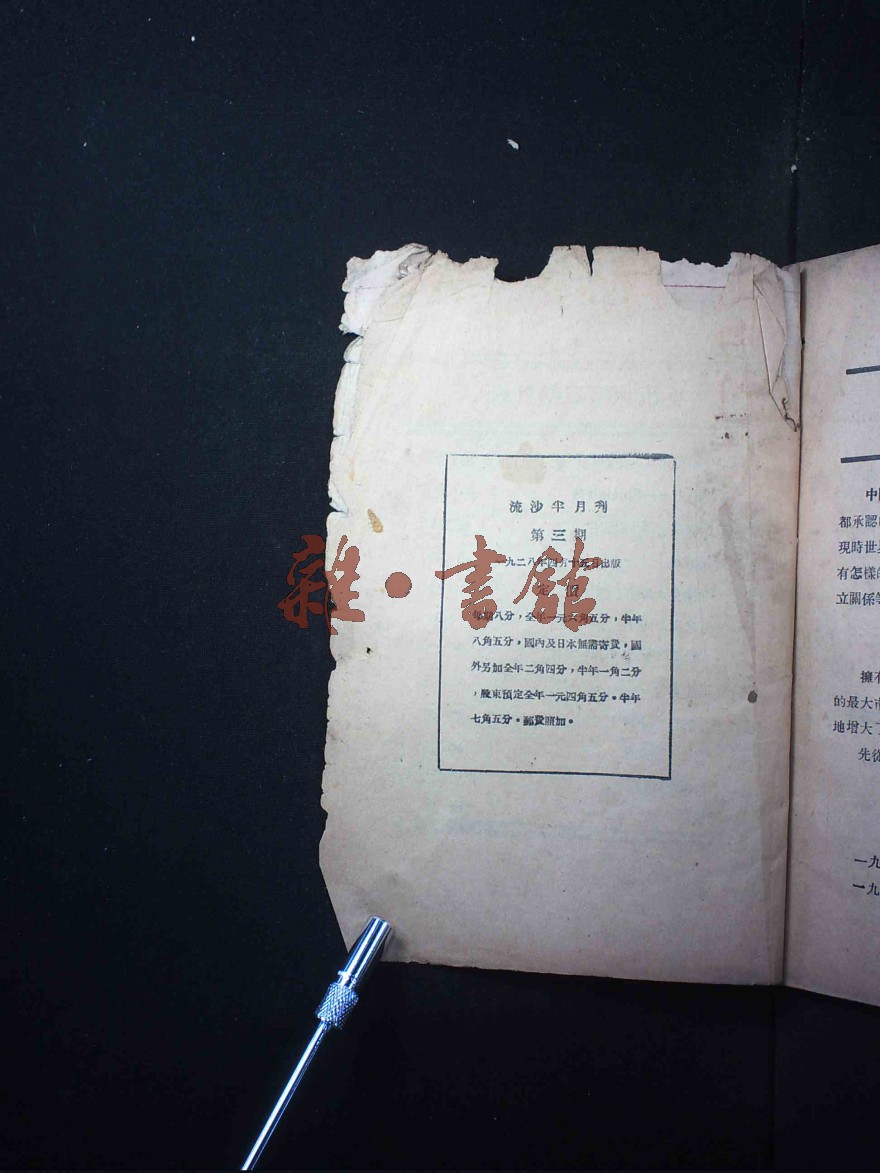 流沙半月刋
第三期
一九二八年四月十五日出版
定價
每期八分，全年一元六角五分，半年
八角五分，國內及日本無需寄費，國
外另加全年二角四分，半年一角二分
，股東預定全年一元四角五分。半年
七角五分。郵費照加。
雜·書館
中
都承認
現時世
有怎樣
立關係
擁有
的最大
地增大
先從
一九
一九